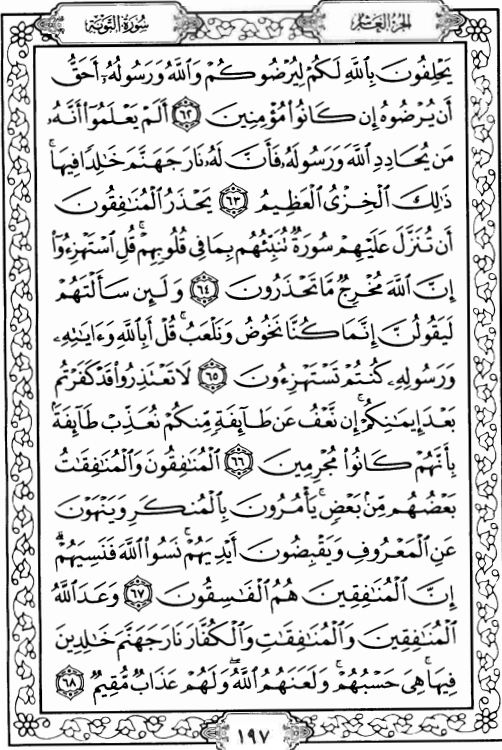 سورة التوبة
الجزء العاشر
يَحْلِفُونَ بِٱللَّهِ لَكُمْ لِيُرْضُوكُمْ وَٱللَّهُ وَرَسُولُهُۥٓ أَحَقُّ
أَن يُرْضُوهُ إِن كَانُوا۟ مُؤْمِنِينَ ٦٢ أَلَمْ يَعْلَمُوٓا۟ أَنَّهُۥ
مَن يُحَادِدِ ٱللَّهَ وَرَسُولَهُۥ فَأَنَّ لَهُۥ نَارَ جَهَنَّمَ خَٰلِدًا فِيهَا ۚ
ذَٰلِكَ ٱلْخِزْىُ ٱلْعَظِيمُ ٦٣ يَحْذَرُ ٱلْمُنَٰفِقُونَ
أَن تُنَزَّلَ عَلَيْهِمْ سُورَةٌ تُنَبِّئُهُم بِمَا فِى قُلُوبِهِمْ ۚ قُلِ ٱسْتَهْزِءُوٓا۟
إِنَّ ٱللَّهَ مُخْرِجٌ مَّا تَحْذَرُونَ ٦٤ وَلَئِن سَأَلْتَهُمْ
لَيَقُولُنَّ إِنَّمَا كُنَّا نَخُوضُ وَنَلْعَبُ ۚ قُلْ أَبِٱللَّهِ وَءَايَٰتِهِۦ
وَرَسُولِهِۦ كُنتُمْ تَسْتَهْزِءُونَ ٦٥ لَا تَعْتَذِرُوا۟ قَدْ كَفَرْتُم
بَعْدَ إِيمَٰنِكُمْ ۚ إِن نَّعْفُ عَن طَآئِفَةٍ مِّنكُمْ نُعَذِّبْ طَآئِفَةًۢ
بِأَنَّهُمْ كَانُوا۟ مُجْرِمِينَ ٦٦ ٱلْمُنَٰفِقُونَ وَٱلْمُنَٰفِقَٰتُ
بَعْضُهُم مِّنۢ بَعْضٍ ۚ يَأْمُرُونَ بِٱلْمُنكَرِ وَيَنْهَوْنَ
عَنِ ٱلْمَعْرُوفِ وَيَقْبِضُونَ أَيْدِيَهُمْ ۚ نَسُوا۟ ٱللَّهَ فَنَسِيَهُمْ ۗ
إِنَّ ٱلْمُنَٰفِقِينَ هُمُ ٱلْفَٰسِقُونَ ٦٧ وَعَدَ ٱللَّهُ
ٱلْمُنَٰفِقِينَ وَٱلْمُنَٰفِقَٰتِ وَٱلْكُفَّارَ نَارَ جَهَنَّمَ خَٰلِدِينَ
فِيهَا ۚ هِىَ حَسْبُهُمْ ۚ وَلَعَنَهُمُ ٱللَّهُ ۖ وَلَهُمْ عَذَابٌ مُّقِيمٌ ٦٨
١٩٧